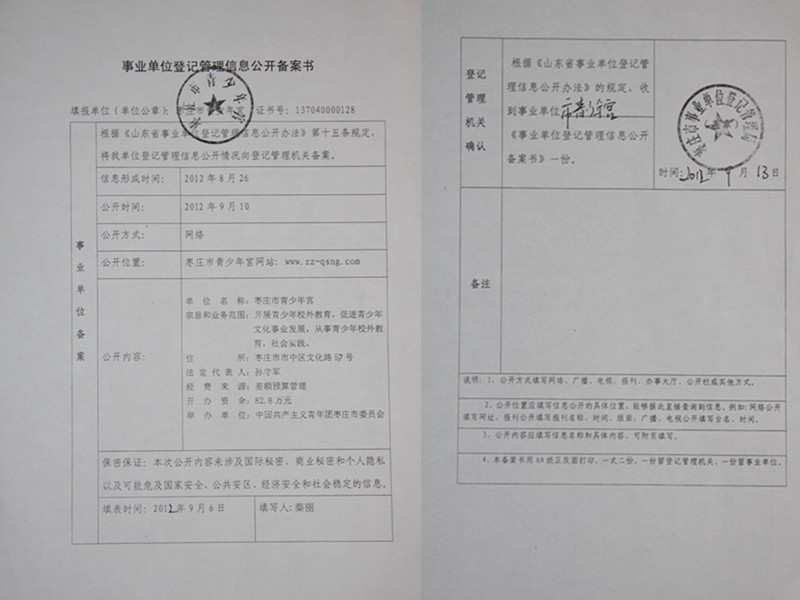 事业单位登记管理信息公开备案书
填报单位（单位公章）：枣庄市青少年宫 证书号：137040000128
事业单位备案
根据《山东省事业单位登记管理信息公开办法》第十五条规定，
将我单位登记管理信息公开情况向登记管理机关备案。
信息形成时间： 2012年8月26
公开时间： 2012年9月10
公开方式： 网络
公开位置： 枣庄市青少年宫网站：www.zz-qsng.com
公开内容：
单位名称：枣庄市青少年宫
宗旨和业务范围：开展青少年校外教育，促进青少年
文化事业发展，从事青少年校外教
育，社会实践。
住所：枣庄市市中区文化路57号
法定代表人：孙守军
经费来源：差额预算管理
开办资金：82.8万元
举办单位：中国共产主义青年团枣庄市委员会
保密保证：本次公开内容未涉及国际秘密、商业秘密和个人隐私
以及可能危及国家安全、公共安区、经济安全和社会稳定的信息。
填表时间：2012年9月6日 填写人：秦丽
登记
管理
机关
确认
根据《山东省事业单位登记管
理信息公开办法》的规定，收
到事业单位 市青少年宫
《事业单位登记管理信息公开
备案书》一份。
枣庄市事业单位登记管理局
时间：2012年9月13日
备注
说明：1、公开方式填写网络、广播、电视、报刊、办事大厅、公开栏或其他方式。
2、公开位置应填写信息公开的具体位置，能够据此直接查询到信息，例如：网络公开
填写网址，报刊公开填写报刊名称、时间、版面，广播、电视公开填写台名、时间。
3、公开内容应填写信息名称和具体内容，可附页填写。
4、本备案书用A4纸正反面打印，一式二份，一份留登记管理机关，一份留事业单位。